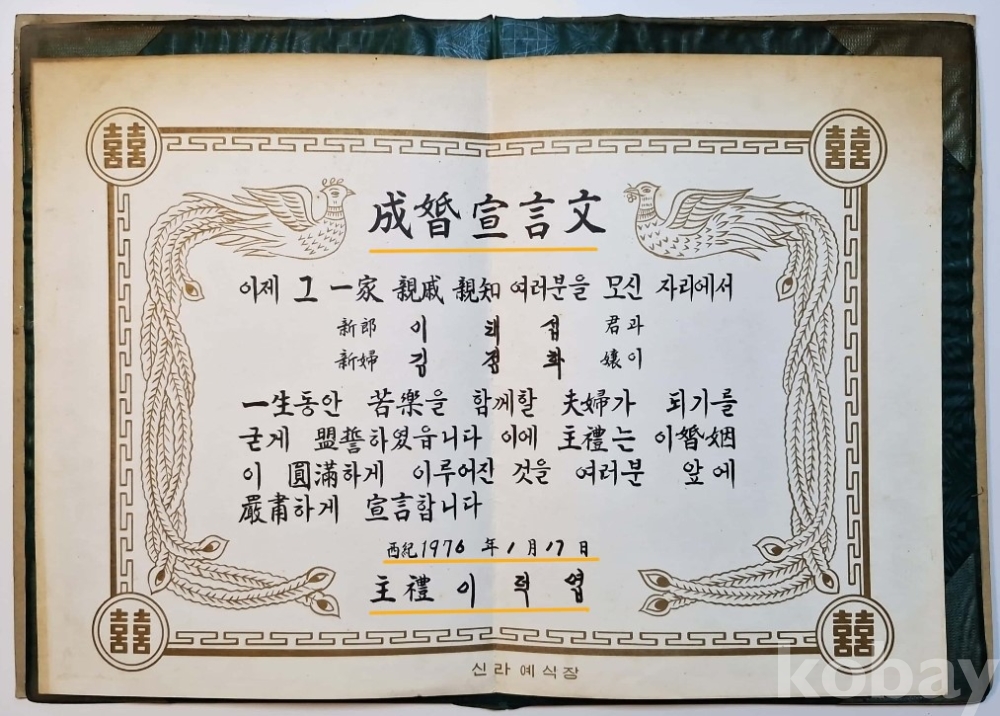 成婚宣言文
이제 그 一家 親戚 親知 여러분을 모신 자리에서
新郎 이 태 섭 君과
新婦 김 정 화 孃이
一生동안 苦樂을 함께할 夫婦가 되기를
굳게 盟誓하였읍니다 이에 主禮는 이婚姻
이 圓滿하게 이루어진 것을 여러분 앞에
嚴肅하게 宣言합니다
西紀1976 年 1 月 17 日
主禮 이 덕 엽
신라예식장
kobay